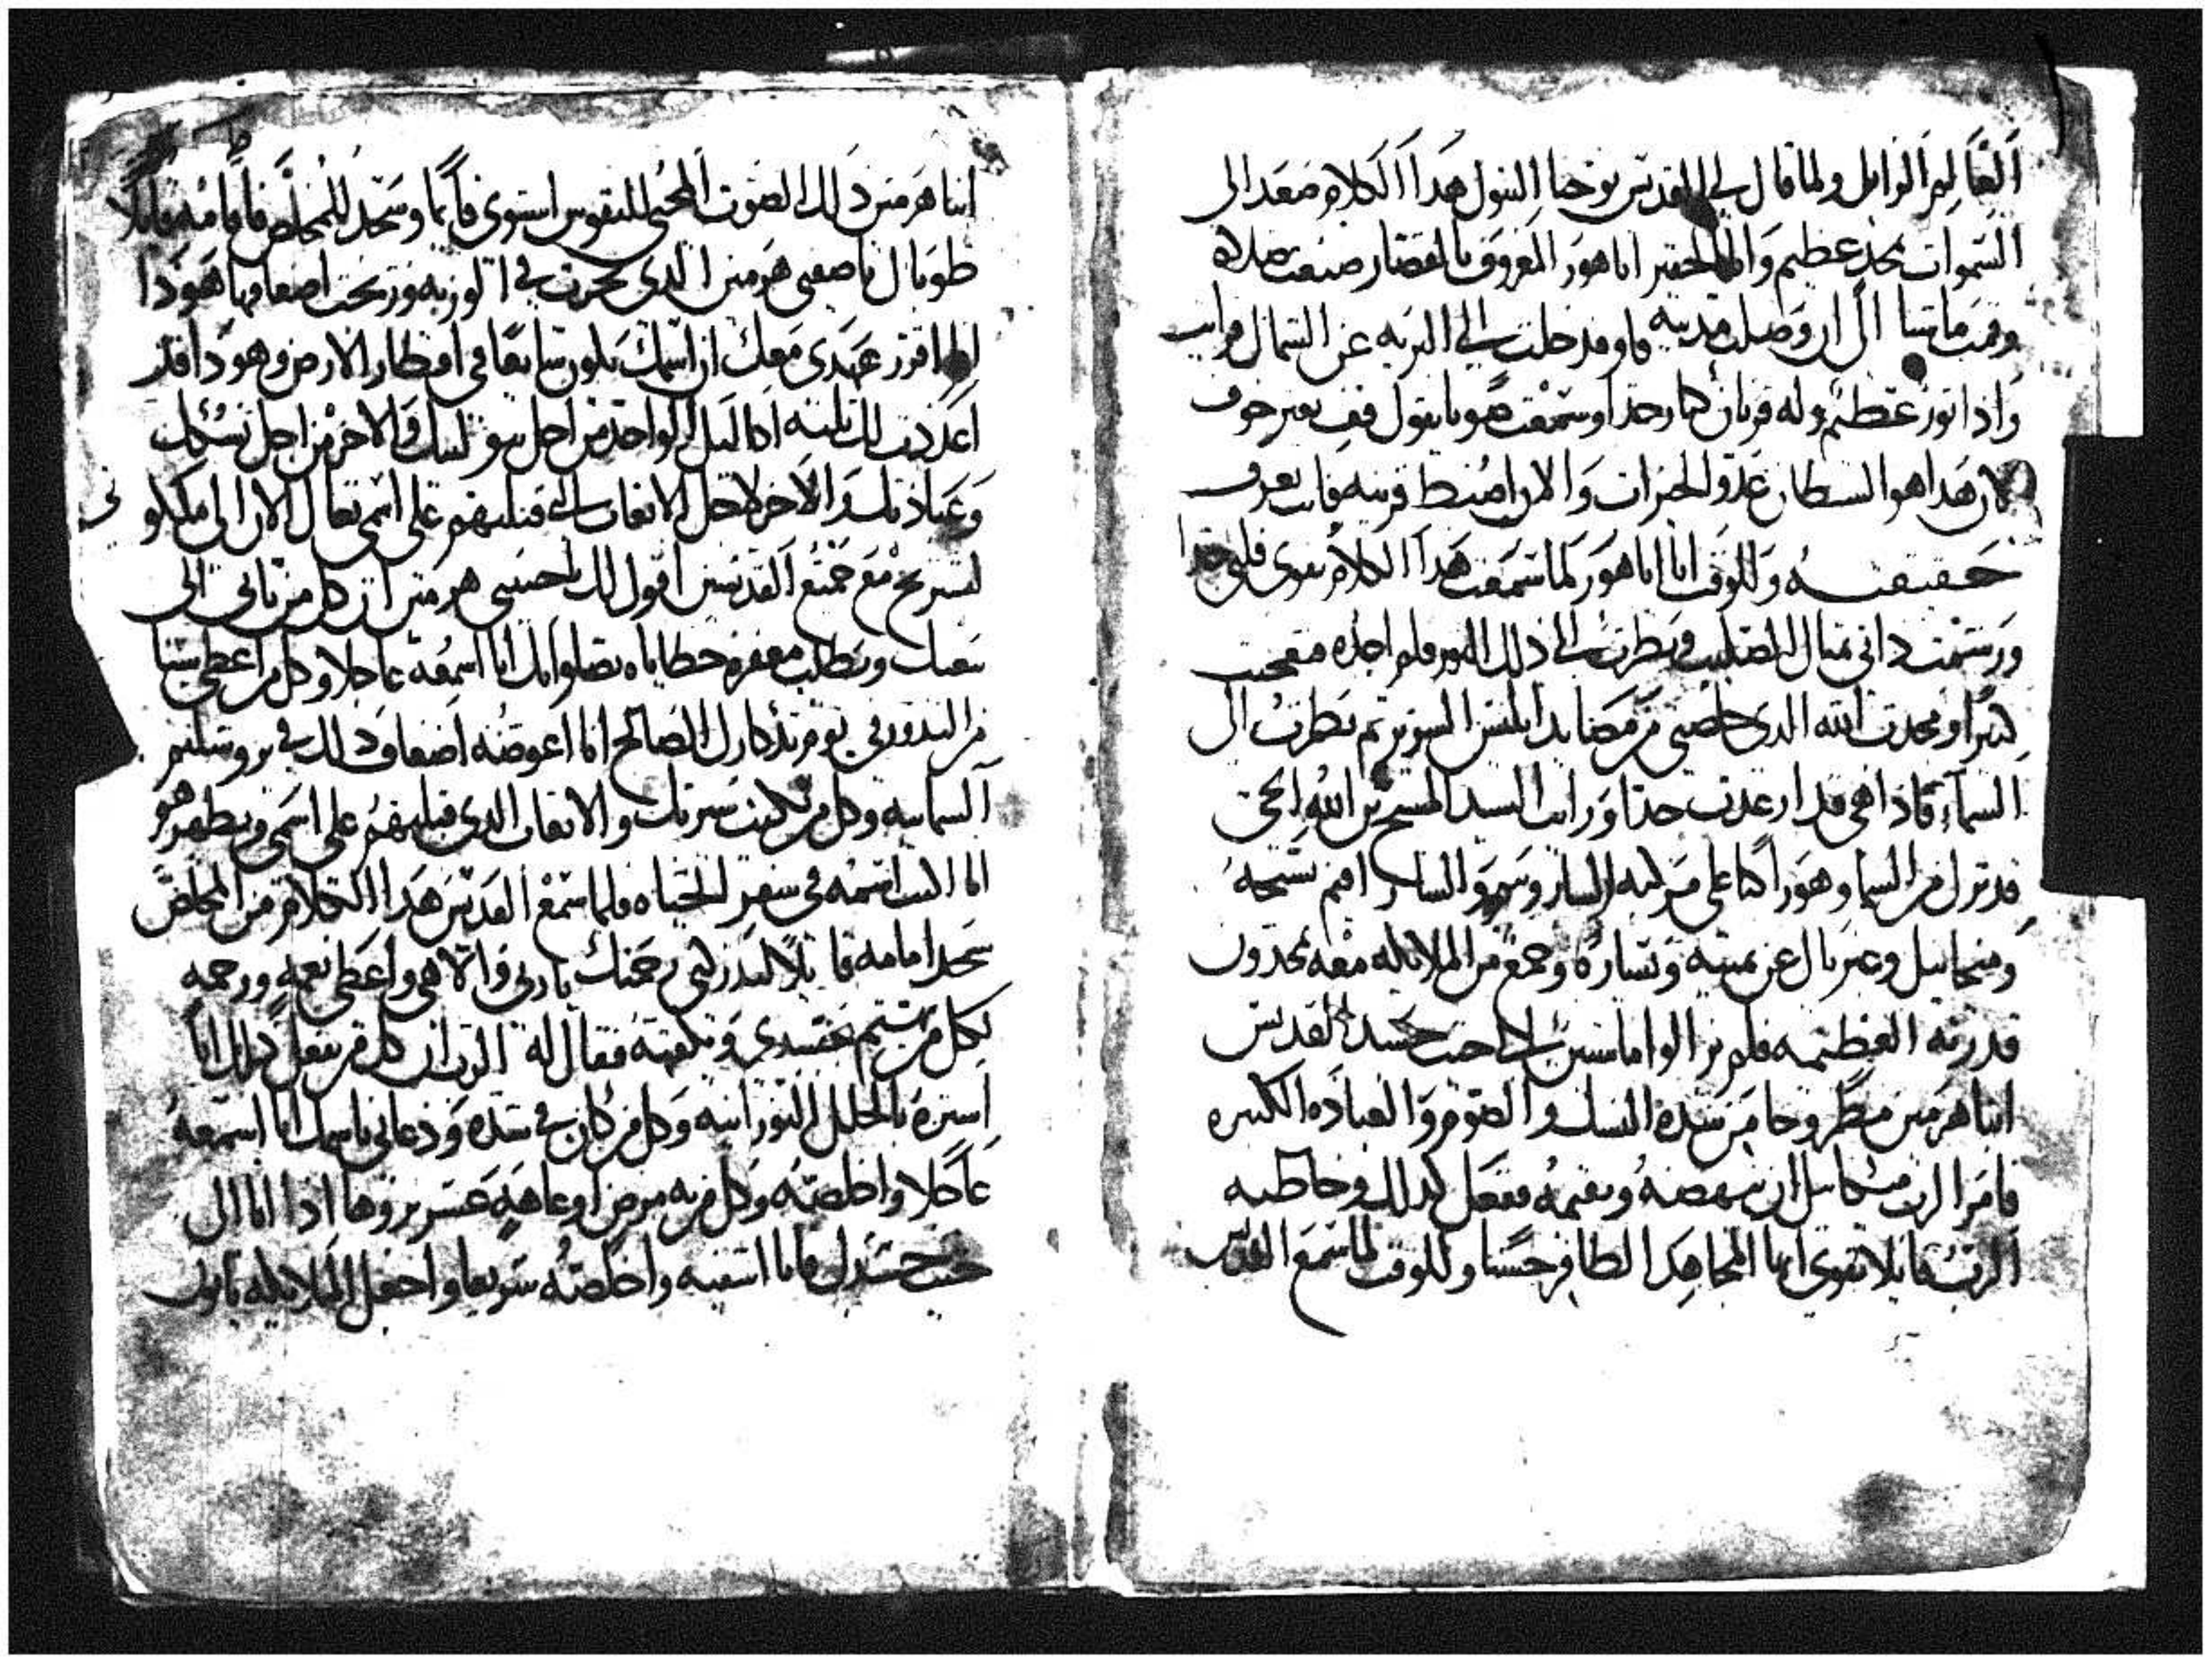 العالم الزايل ولما قال لي القديس يوحنا البتول هدا الكلام صعد الى
السموات بمجد عظيم وانا الحقير اباهور المعروف بالقصار صنعت صلاه
وقمت ماشيا الى ان وصلت مدينه قاو فدخلت الى البريه عن الشمال فرايت
واذا نور عظيم وله فرنان كبار جدا وسمعت صوتا يقول قف بغير خوف
لان هدا هو السطان عدو الخيرات والان اضبط قرنيه فانت تعرف
حقيقته وللوقت انا اباهور لما سمعت هدا الكلام تقوى قلبي جدا
ورشمت داتي بمتال الصليب ونظرت الى ذلك التور فلم اجده فتعجبت
كتيرا ومجدت الله الدي خلصني من مصايد ابليس الشرير تم نظرت الى
السماء فاذا هي قد ارعدت جدا ورايت السيد المسيح بن الله الحي
قد نزل من السما وهو راكبا على مركبه الساروبيم والسارافيم تسبحه
وميخاييل وغبريال عن يمينه ويساره وجمع من الملايكه معه يمجدون
قدرته العظيمه فلم يزالوا ماشين الى حيت جسد القديس
انبا هرمينا مطروحا من شدة النسك والصوم والعباده الكتيره
فامر الرب ميخاييل ان ينهضه ويقيمه ففعل كدلك وخاطبه
الرب قايلا تقوى ايها المجاهد الظافر حسنا وللوقت لما سمع القديس
انبا هرمينا دلك الصوت المحيي للنفوس استوى قايما وسجد للمخلص فاقامه قايلا
طوباك يا صفيي هرمينا الدي تجرت في الوزنه وربحت اضعافها هودا
انا اقرر عهدي معك ان اسمك يكون شايعا في اقطار الارض وهودا قد
اعددت لك تلته اكاليل الواحد من اجل بتوليتك والاخر من اجل نسكك
وعبادتك والاخر لاجل الاتعاب التي قبلتهم على اسمي تعال الان الى ملكوتي
لتستريح مع جميع القديسين اقول لك يا حبيبي هرمينا ان كل من ياتي الى
بيعتك ويطلب مغفرة خطاياه بصلواتك انا اسمعه عاجلا وكل من اعطى شيا
من الندور في يوم تدكارك الصالح انا اعوضه اضعاف دلك في يروشليم
السماييه وكل من يكتب سيرتك والاتعاب الدي قبلتهم على اسمي ويظهرهم
انا اكتب اسمه في سفر الحياه فلما سمع القديس هدا الكلام من المخلص
سجد امامه قايلا لتدركني رحمتك يا ربي والاهي واعطي نعمه ورحمه
لكل من يهتم بجسدي وتكفينه فقال له الرب ان كل من يفعل دلك انا
استره بالحلل النورانيه وكل من كان في شده ودعاني باسمك انا اسمعه
عاجلا واخلصه وكل من به مرض او عاهه عسر بروها اذا اتا الى
حيت جسدك فانا اشفيه واخلصه سريعا واجعل الملايكه تاتي